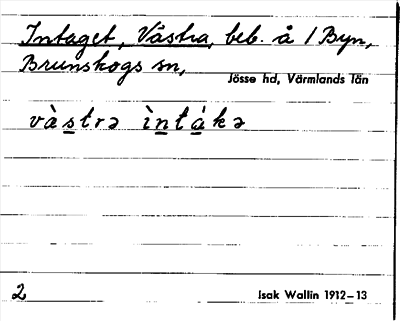 Intaget, Västra, beb. å 1 Byn,
Brunskogs sn,
Jösse hd, Värmlands län
vàstrə ìntákə
2
Isak Wallin 1912–13